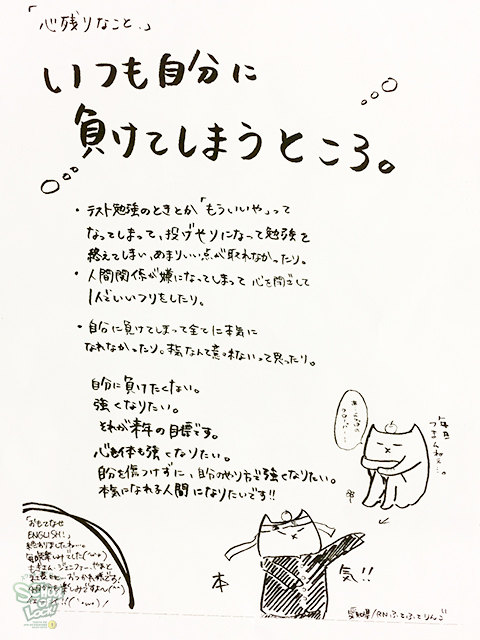 「心残りなこと。」
いつも自分に
負けてしまうところ。
・テスト勉強のときとか「もういいや」って
なってしまって、投げやりになって勉強を
終えてしまい、あまりいい点が取れなかったり。
・人間関係が嫌になってしまって 心を閉ざして
1人でいいつりをしたり。
・自分に負けてしまって全てに本気に
なれなかったり。本気なんて意味ないって思ったり。
自分に負けたくない。
強くなりたい。
それが来年の目標です。
心も体も強くなりたい。
自分を傷つけずに、自分のやり方で強くなりたい。
本気になれる人間になりたいです!!
「おもてなせ
ENGLISH!」
終わりましたねー。
毎回楽しみでした(^ω^)
もぎさん、ジェニファー、やまと
おつかれ様です!
本 気!!
愛知県/RNふてふてりんご